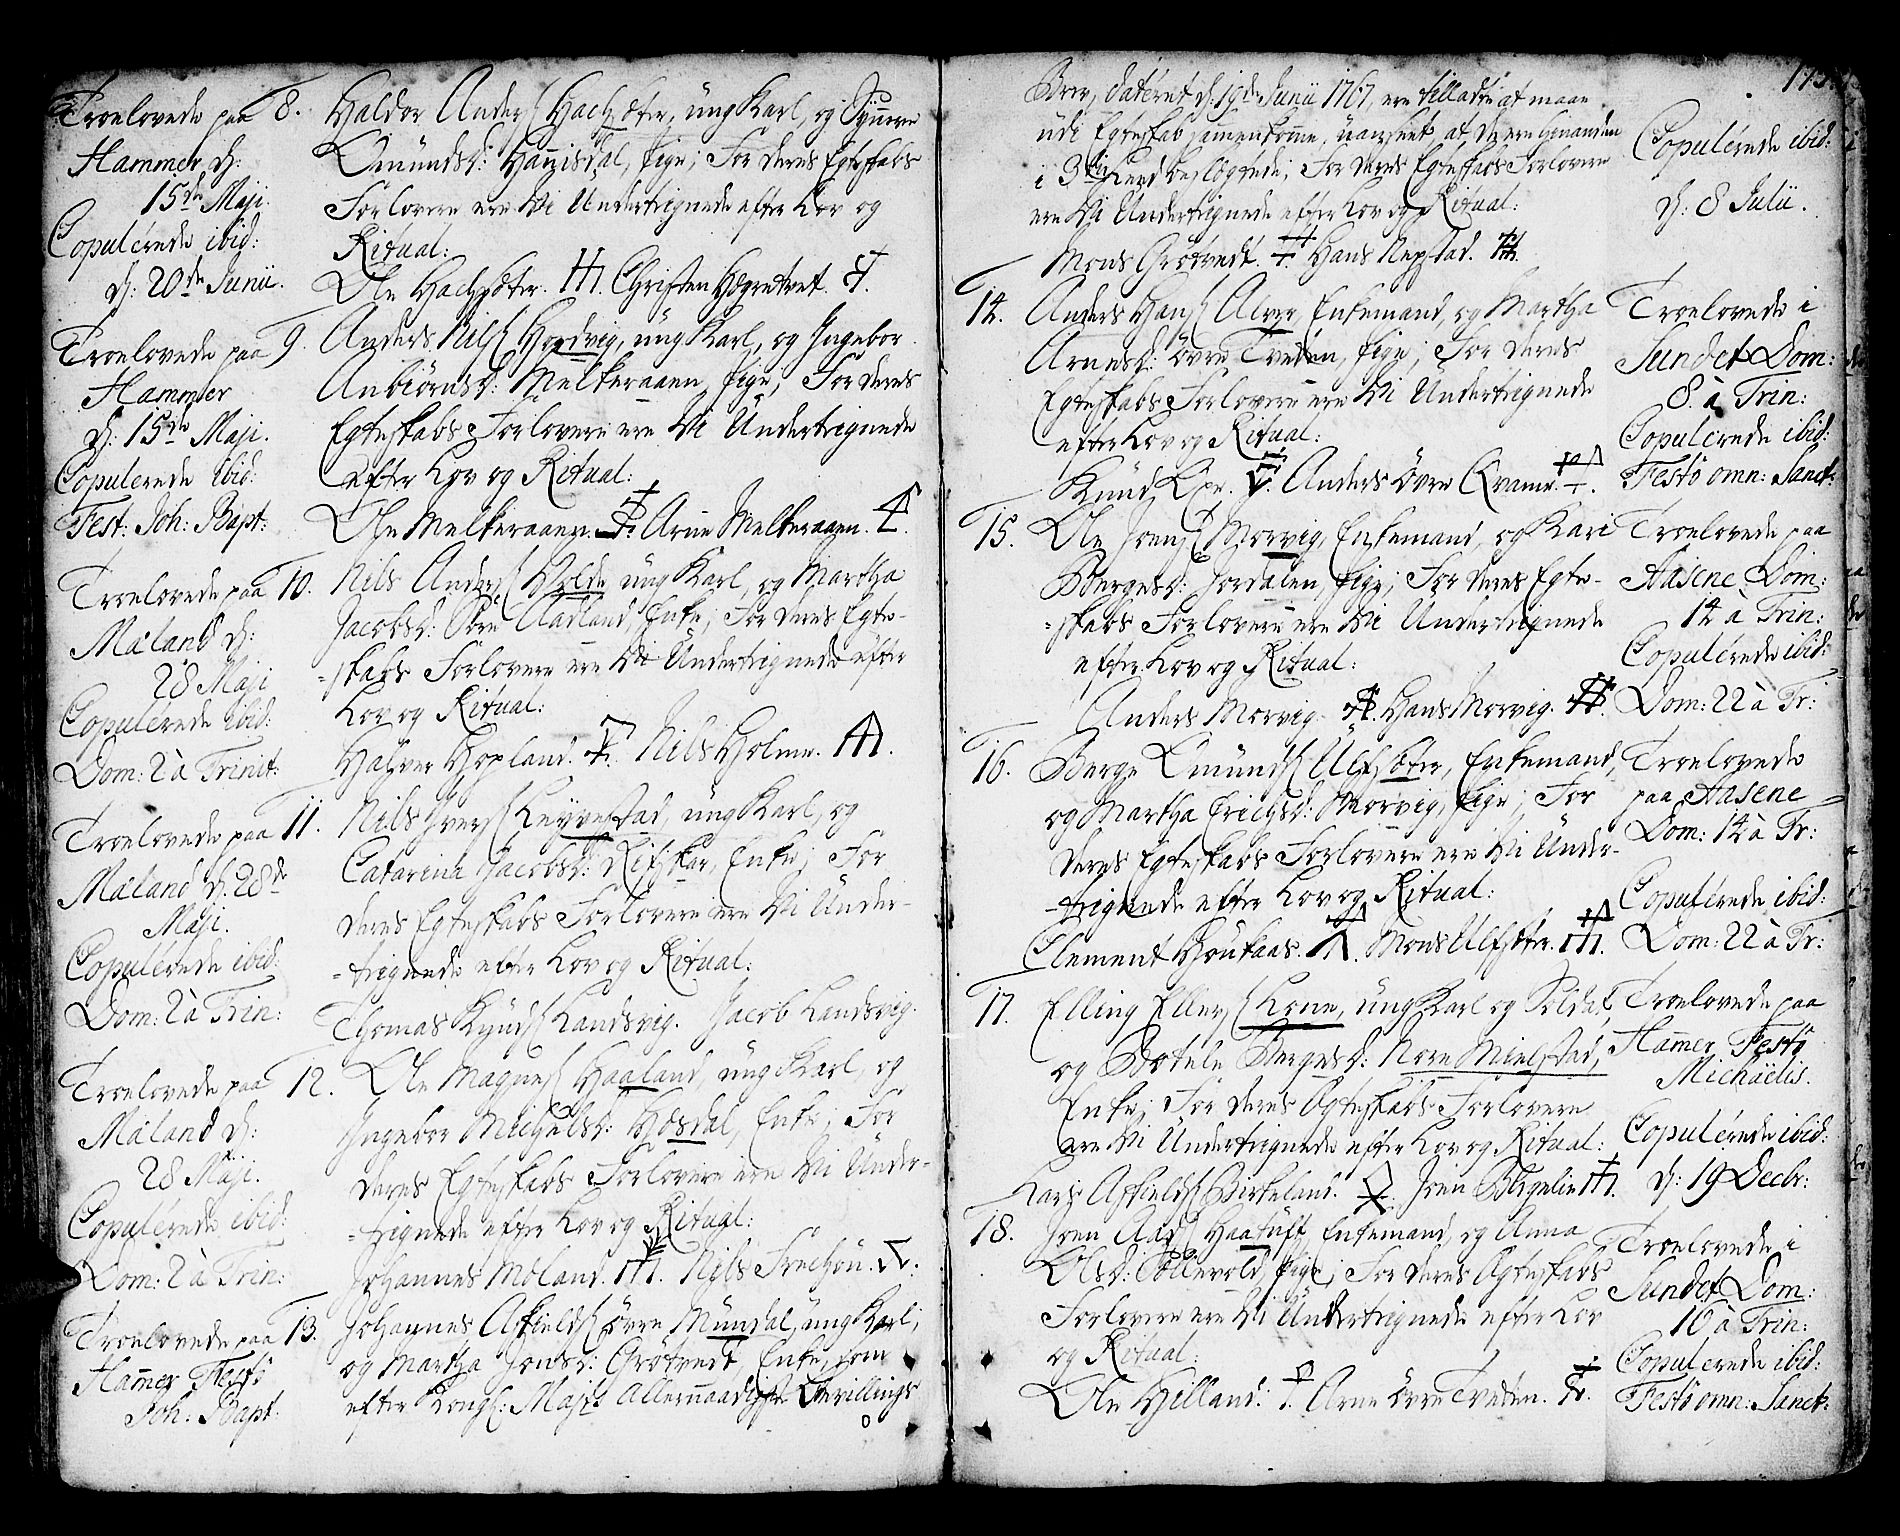 Troelovede paa
Hammer d:
15de Maji.
Copulerede ibid:
d: 20de Junii.
8. Haldor Anders Hachsøter, ung Karl, og Synneve
Omundsd: Hannisdal, Pige; For deres Egteskabs
Forlovere ere Vi Undertegnede efter Lov og
Ritual:
Ole Hachsøter. Christen
Troelovede paa
Hammer
d: 15de Maji.
Copulerede ibid:
Fest: Joh: Bapt:
9. Anders Nils Hordvig, ung Karl, og Ingebor
Anbiörnsd: Melkeraaen, Pige; For deres
Egteskabs Forlovere ere Vi Undertegnede
efter Lov og Ritual:
Ole Melkeraaen. Arne Melkeraaen.
Troelovede paa
Måland d:
28 Maji
Copulerede ibid:
Dom: 2 à Trinit:
10. Nils Anders Holde ung Karl, og Martha
Jacobsd: Aadland, Enke; For deres Egte-
skabs Forlovere ere Vi Undertegnede efter
Lov og Ritual:
Halver Hopland. Nils Holme.
Troelovede paa
Måland d: 28de
Maji.
Copulerede ibid:
Dom: 2 à Trin:
11. Nils Ivers Leyvestad, ung Karl, og
Catarina Jacobsd: Rifskar, Enke; For
deres Egteskabs Forlovere ere Vi Under-
-tegnede efter Lov og Ritual:
Thomas Knuds Landsvig. Jacob Landsvig.
Troelovede paa
Måland d:
28 Maji.
Copulerede ibid:
Dom: 2 à Trin:
12. Ole Magnes Haaland, ung Karl, og
Ingebor Michelsd: Hosdal, Enke; For
deres Egteskabs Forlovere ere Vi Under-
-tegnede efter Lov og Ritual:
Johannes Måland. Nils
Troelovede paa
Hamer Festo
Joh: Bapt:
13. Johannes Askields övre Mundal, ung Karl,
og Martha Jonsd: Grötvedt, Enke, som
efter Kongl: Majts Allernaadigste Bevillings
Brev, dateret d: 19de Junii 1767, ere tilladte at maae
udi Egteskab samenkomme, uanseet at de ere hinanden
i 3die Leed beslægtede; For deres Egteskabs Forlovere
ere Vi Undertegnede efter Lov og Ritual:
Mons Grötvedt. Hans Nepstad.
Copulerede ibid:
d: 8 Julii.
14. Anders Hans Alver, Enkemand, og Martha
Arnesd: övre Tveden, Pige; For deres
Egteskabs Forlovere ere Vi Undertegnede
efter Lov og Ritual:
Knud Anders övre Qvamme.
Troelovede i
Sundet Dom:
8. à Trin:
Copulerede ibid:
Festo omn: Sanct:
15. Ole Joens Morvig, Enkemand, og Kari
Bergesd: Jordalen, Pige; For deres Egte-
-skabs Forlovere ere Vi Undertegnede
efter Lov og Ritual:
Anders Morvig. Hans Morvig.
Troelovede paa
Aasene Dom:
14 à Trin:
Copulerede ibid:
Dom: 22 à Tr:
16. Berge Omunds Ulfsøter, Enkemand,
og Martha Erichsd: Morvig, Pige; For
deres Egteskabs Forlovere ere Vi Under-
-tegnede efter Lov og Ritual:
Clement Houkaas. Mons Ulfsøter.
Troelovede
paa Aasene
Dom: 14 à Tr:
Copulerede ibid:
Dom: 22 à Tr:
17. Elling Ellers Lone, ung Karl og Soldat,
og Botele Bergesd: Nore Mielstad,
Enke; For deres Egteskabs Forlovere
ere Vi Undertegnede efter Lov og Ritual:
Lars Askields Birkeland. Joen
Troelovede paa
Hamer Festo
Michaëlis.
Copulerede ibid:
d: 19 Decbr:
18. Joen Aads Haatuft Enkemand, og Anna
Olsd: Tollevold, Pige; For deres Egteskabs
Forlovere ere Vi Undertegnede efter Lov
og Ritual:
Ole Hilland: Arne övre Tveden.
Troelovede i
Sundet Dom:
16 à Trin:
Copulerede ibid:
Festo omn: Sanct: